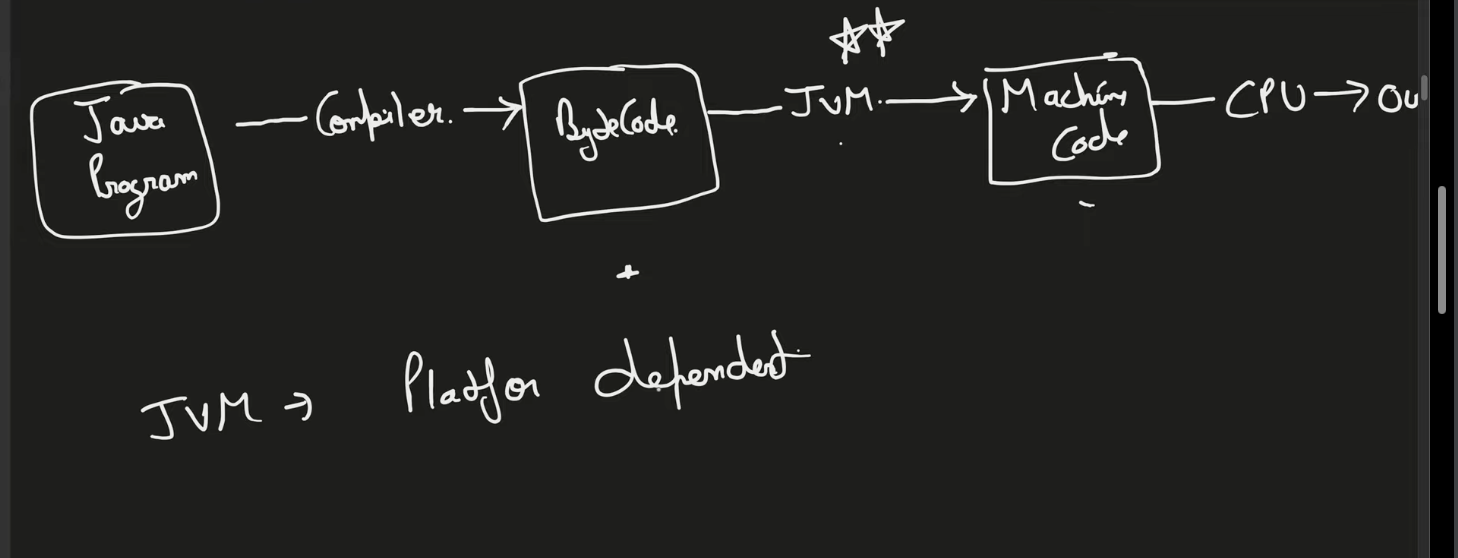 Java Program
Compiler.
ByteCode.
JVM.
Machine Code
CPU
Ou
JVM → Platfor dependent